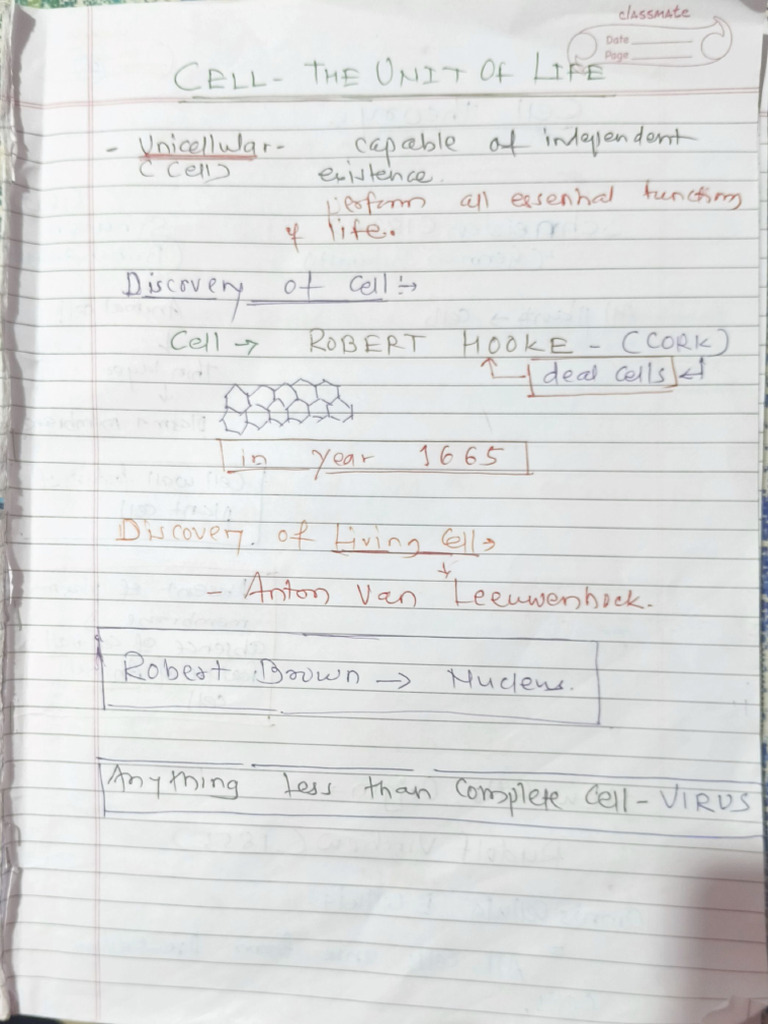 classmate
Date
Page
CELL - THE UNIT OF LIFE
- Unicellular - capable of independent
(Cell) existence.
perform all essential function
of life.
Discovery of Cell :→
Cell → ROBERT HOOKE - (CORK)
dead cells
in year 1665
Discovery of Living Cell→
- Anton Van Leeuwenhoek.
Robert Brown → Nucleus.
Anything less than complete cell - VIRUS